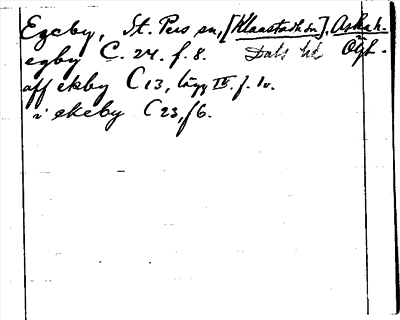 Egeby, St. Pers sn, [Klaastadh sn], Askah.
egby C. 24. f. 8. Dals hd Ögh.
aff ekby C 13, lägg IV. f. 1v.
i ekeby C 23, f 6.